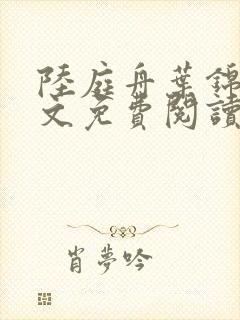 陸庭舟葉錦
文免費閱讀
肖夢吟